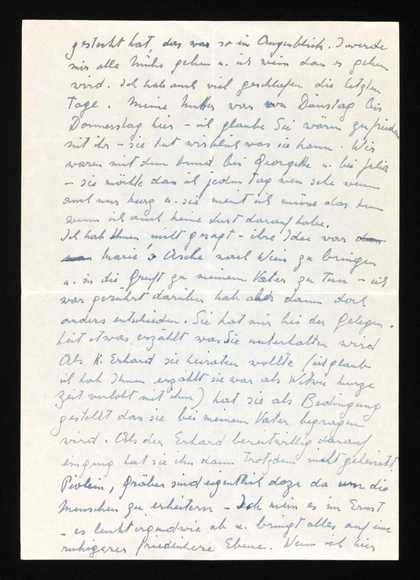 gesteckt hat, das war so im Augenblick. I werde
mir alle Mühe geben u. ich weiss dass es gehen
wird. Ich hab auch viel geschlafen die letzten
Tage. Meine Mutter war von Dienstag bis
Donnerstag hier – ich glaube Sie wären zufrieden
mit ihr – sie tut wirklich was sie kann. Wir
waren mit dem Hund bei Georgette u. bei Julia
– sie möchte dass ich jeden Tag wen sehe wenn
auch nur kurz u. sie meint ich müsse das tun
wenn ich auch keine Lust darauf habe.
Ich hab Ihnen nicht gesagt – ihre Idee war
Marie's Asche nach Wien zu bringen
u. in die Gruft zu meinem Vater zu tun – ich
war gerührt darüber hab aber dann doch
anders entschieden. Sie hat mir bei der Gelegen-
heit etwas erzählt was Sie unterhalten wird
Als K. Erhard sie heiraten wollte (ich glaub
ich hab Ihnen erzählt sie war als Witwe kurze
Zeit verlobt mit ihm) hat sie als Bedingung
gestellt dass sie bei meinem Vater begraben
wird. Als der Erhard bereitwillig darauf
einging hat sie ihn dann trotzdem nicht geheiratet
Gräber sind eigentlich dazu da um die
Menschen zu erheitern – Ich mein es im Ernst
– es leuchtet irgendwie ab u. bringt alles auf eine
ruhigere friedlichere Ebene. Wenn ich hier